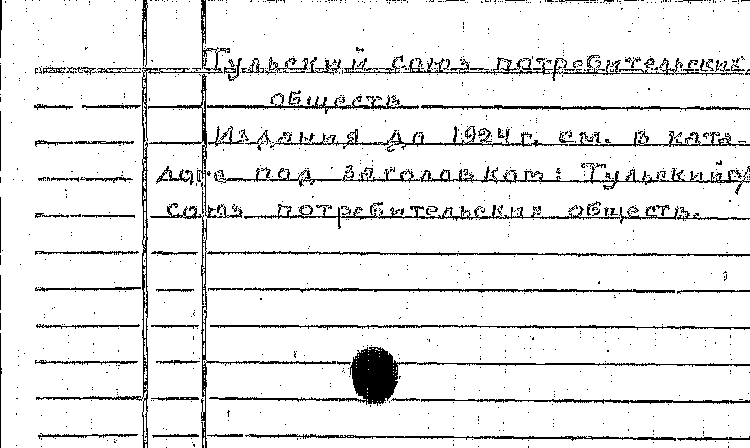 Тульский союз потребительских
обществ
Издания до 1924 г. см. в ката-
логе под заголовком: Тульский
союз потребительских обществ.